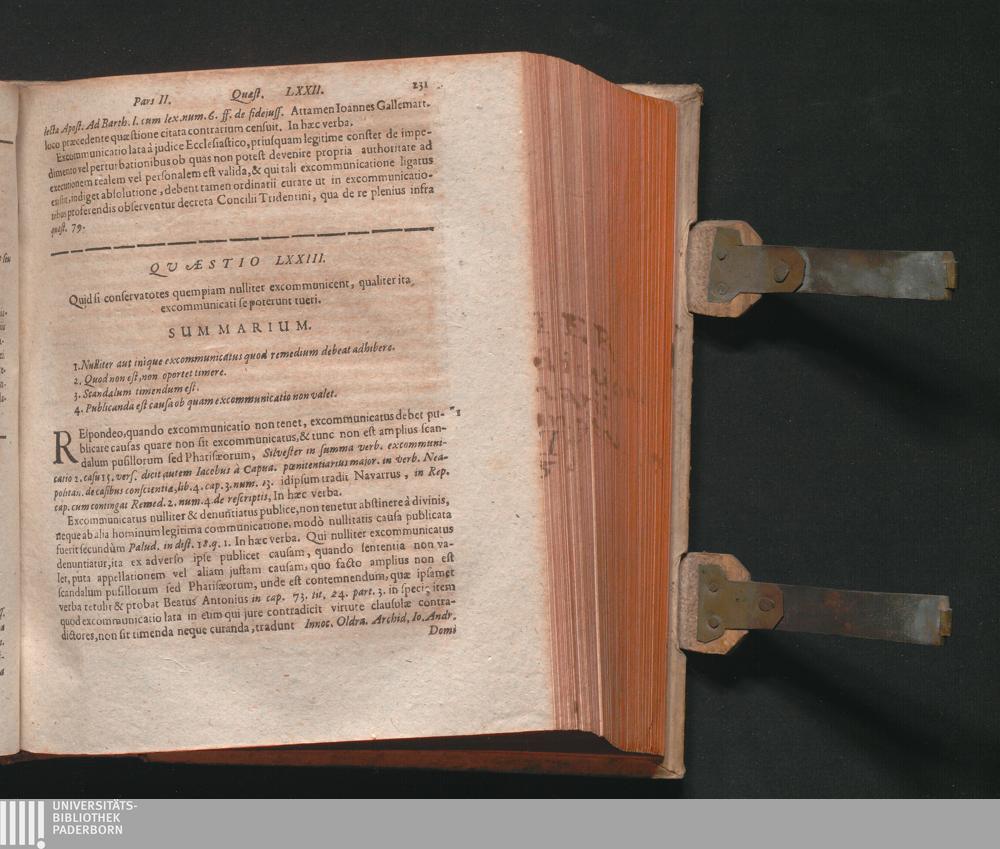 Pars II. Quæst. LXXII. 231
lecta Apost. Ad Barth. l. cum lex. num. 6. ff. de fidejuss. Attamen Ioannes Gallemart.
loco præcedente quæstione citata contrarium censuit. In hæc verba.
Excommunicatio lata à judice Ecclesiastico, priusquam legitime constet de impe-
dimento vel perturbationibus ob quas non potest devenire propria authoritate ad
executionem realem vel personalem est valida, & qui tali excommunicatione ligatus
indiget absolutione, debent tamen ordinarii curare ut in excommunicatio-
nibus proferendis observentur decreta Concilii Tridentini, qua de re plenius infra
quæst. 79.
QVÆSTIO LXXIII.
Quid si conservatores quempiam nulliter excommunicent, qualiter ita
excommunicati se poterunt tueri.
SUMMARIUM.
1. Nulliter aut inique excommunicatus quod remedium debeat adhibere.
2. Quod non est, non oportet timere.
3. Scandalum timendum est.
4. Publicanda est causa ob quam excommunicatio non valet.
REspondeo, quando excommunicatio non tenet, excommunicatus debet pu- 1
blicare causas quare non sit excommunicatus, & tunc non est amplius scan-
dalum pusillorum sed Pharisæorum, Silvester in summa verb. excommuni-
catio 2. casu 15. vers. dicit autem Iacobus à Capua. pœnitentiarius major. in verb. Nea-
politan. de casibus conscientiæ, lib. 4. cap. 3. num. 13. idipsum tradit Navarrus, in Rep.
cap. cum contingat Remed. 2. num. 4. de rescriptis, In hæc verba.
Excommunicatus nulliter & denuntiatus publice, non tenetur abstinere à divinis,
neque ab alia hominum legitima communicatione, modò nullitatis causa publicata
fuerit secundùm Palud. in dist. 18. q. 1. In hæc verba. Qui nulliter excommunicatus
denuntiatur, ita ex adverso ipse publicet causam, quando sententia non va-
let, puta appellationem vel aliam justam causam, quo facto amplius non est
scandalum pusillorum sed Pharisæorum, unde est contemnendum, quæ ipsamet
verba retulit & probat Beatus Antonius in cap. 73. tit. 24. part. 3. in specie, item
quod excommunicatio lata in eum qui jure contradicit virtute clausolæ contra-
dictores, non sit timenda neque curanda, tradunt Innoc. Oldra. Archid. Io. Andr.
Domi
UNIVERSITÄTS-
BIBLIOTHEK
PADERBORN